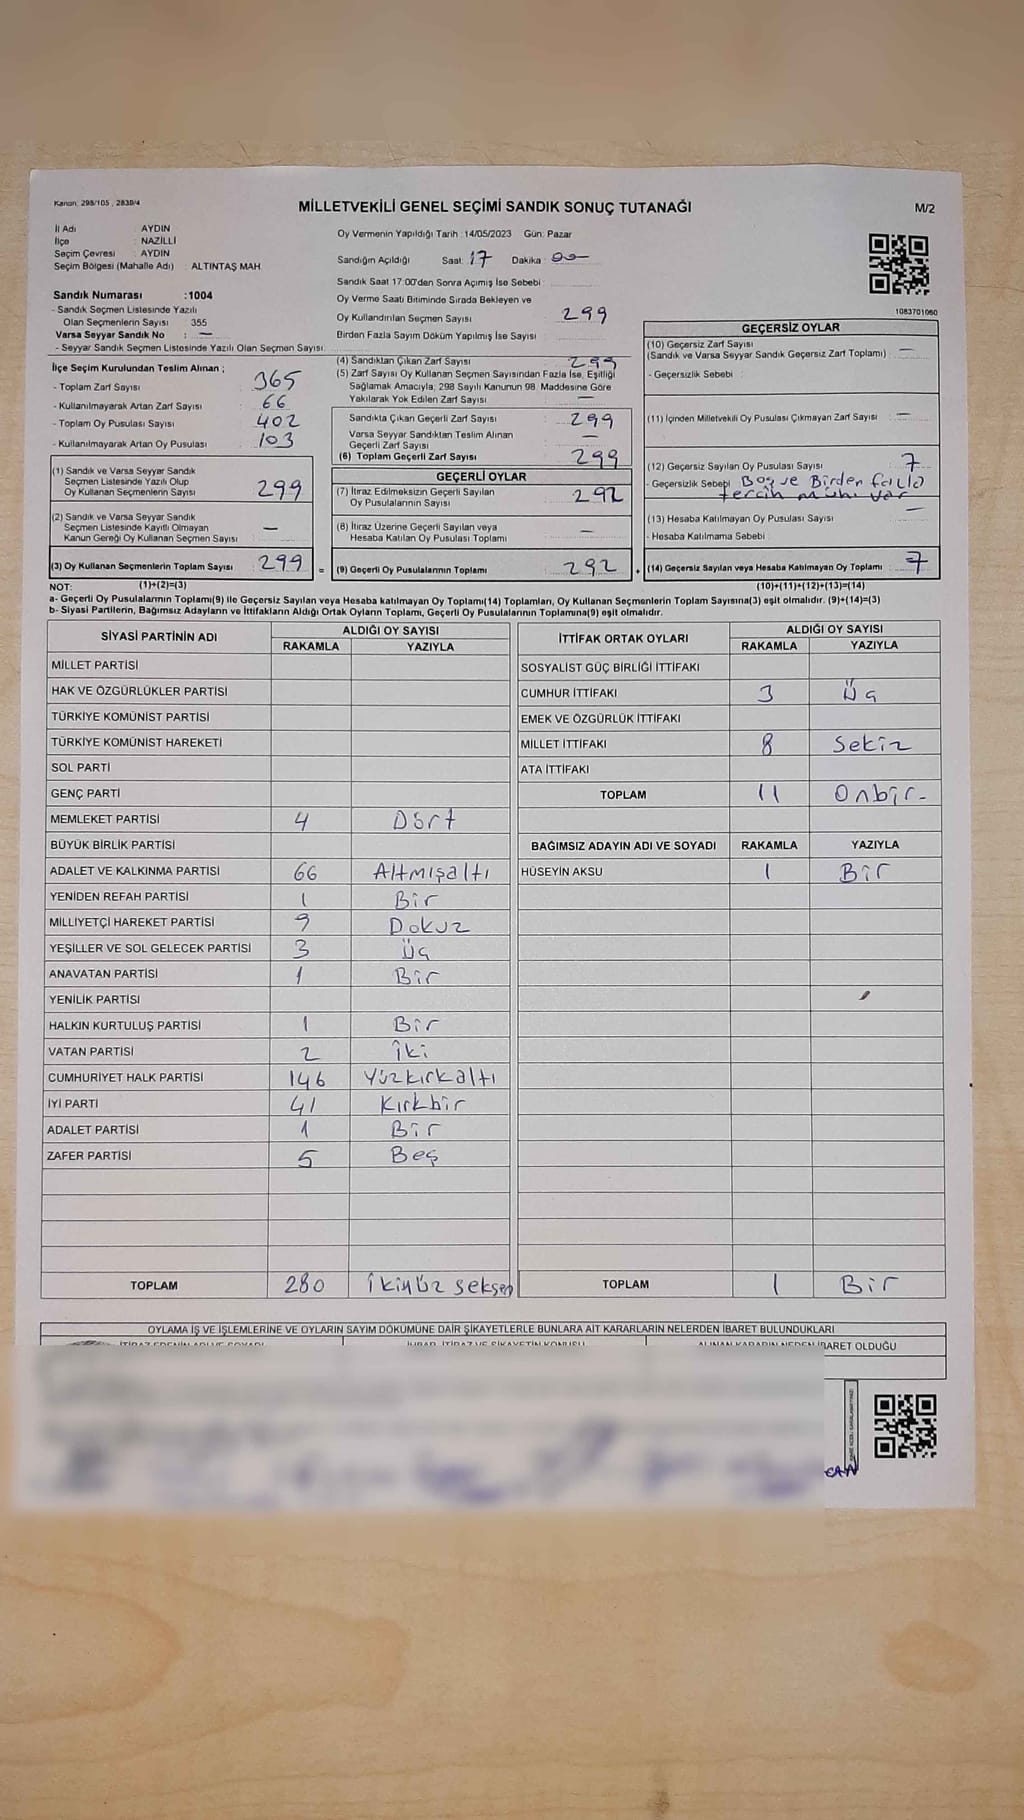 Kanun: 298/105 , 2839/4
MİLLETVEKİLİ GENEL SEÇİMİ SANDIK SONUÇ TUTANAĞI
M/2
İl Adı AYDIN
İlçe : NAZİLLİ
Seçim Çevresi : AYDIN
Seçim Bölgesi (Mahalle Adı) : ALTINTAŞ MAH.
Sandık Numarası :1004
- Sandık Seçmen Listesinde Yazılı
Olan Seçmenlerin Sayısı : 355
Varsa Seyyar Sandık No : —
- Seyyar Sandık Seçmen Listesinde Yazılı Olan Seçmen Sayısı:
İlçe Seçim Kurulundan Teslim Alınan ;
- Toplam Zarf Sayısı : 365
- Kullanılmayarak Artan Zarf Sayısı : 66
- Toplam Oy Pusulası Sayısı : 402
- Kullanılmayarak Artan Oy Pusulası : 103
(1) Sandık ve Varsa Seyyar Sandık
Seçmen Listesinde Yazılı Olup
Oy Kullanan Seçmenlerin Sayısı : 299
(2) Sandık ve Varsa Seyyar Sandık
Seçmen Listesinde Kayıtlı Olmayan
Kanun Gereği Oy Kullanan Seçmen Sayısı : —
(3) Oy Kullanan Seçmenlerin Toplam Sayısı : 299
Oy Vermenin Yapıldığı Tarih :14/05/2023 Gün: Pazar
Sandığın Açıldığı Saat: 17 Dakika: 00
Sandık Saat 17:00'den Sonra Açılmış İse Sebebi :
Oy Verme Saati Bitiminde Sırada Bekleyen ve
Oy Kullandırılan Seçmen Sayısı : 299
Birden Fazla Sayım Döküm Yapılmış İse Sayısı :
(4) Sandıktan Çıkan Zarf Sayısı : 299
(5) Zarf Sayısı Oy Kullanan Seçmen Sayısından Fazla İse, Eşitliği
Sağlamak Amacıyla, 298 Sayılı Kanunun 98. Maddesine Göre
Yakılarak Yok Edilen Zarf Sayısı : —
Sandıkta Çıkan Geçerli Zarf Sayısı : 299
Varsa Seyyar Sandıktan Teslim Alınan
Geçerli Zarf Sayısı : —
(6) Toplam Geçerli Zarf Sayısı : 299
GEÇERLİ OYLAR
(7) İtiraz Edilmeksizin Geçerli Sayılan
Oy Pusulalarının Sayısı : 292
(8) İtiraz Üzerine Geçerli Sayılan veya
Hesaba Katılan Oy Pusulası Toplamı : —
= (9) Geçerli Oy Pusulalarının Toplamı : 292
1083701060
GEÇERSİZ OYLAR
(10) Geçersiz Zarf Sayısı
(Sandık ve Varsa Seyyar Sandık Geçersiz Zarf Toplamı) : —
- Geçersizlik Sebebi :
(11) İçinden Milletvekili Oy Pusulası Çıkmayan Zarf Sayısı : —
(12) Geçersiz Sayılan Oy Pusulası Sayısı : 7
- Geçersizlik Sebebi : Boş ve Birden fazla
tercih mühü var
(13) Hesaba Katılmayan Oy Pusulası Sayısı : —
- Hesaba Katılmama Sebebi :
+ (14) Geçersiz Sayılan veya Hesaba Katılmayan Oy Toplamı : 7
NOT: (1)+(2)=(3) (10)+(11)+(12)+(13)=(14)
a- Geçerli Oy Pusulaları Toplamı(9) ile Geçersiz Sayılan veya Hesaba katılmayan Oy Toplamı(14) Toplamları, Oy Kullanan Seçmenlerin Toplam Sayısına(3) eşit olmalıdır. (9)+(14)=(3)
b- Siyasi Partilerin, Bağımsız Adayların ve İttifakların Aldığı Ortak Oyların Toplamı, Geçerli Oy Pusulalarının Toplamına(9) eşit olmalıdır.
SİYASİ PARTİNİN ADI ALDIĞI OY SAYISI
RAKAMLA YAZIYLA
MİLLET PARTİSİ
HAK VE ÖZGÜRLÜKLER PARTİSİ
TÜRKİYE KOMÜNİST PARTİSİ
TÜRKİYE KOMÜNİST HAREKETİ
SOL PARTİ
GENÇ PARTİ
MEMLEKET PARTİSİ 4 Dört
BÜYÜK BİRLİK PARTİSİ
ADALET VE KALKINMA PARTİSİ 66 Altmışaltı
YENİDEN REFAH PARTİSİ 1 Bir
MİLLİYETÇİ HAREKET PARTİSİ 9 Dokuz
YEŞİLLER VE SOL GELECEK PARTİSİ 3 Üç
ANAVATAN PARTİSİ 1 Bir
YENİLİK PARTİSİ
HALKIN KURTULUŞ PARTİSİ 1 Bir
VATAN PARTİSİ 2 İki
CUMHURİYET HALK PARTİSİ 146 Yüzkırkaltı
İYİ PARTİ 41 Kırkbir
ADALET PARTİSİ 1 Bir
ZAFER PARTİSİ 5 Beş
TOPLAM 280 İkiyüz seksen
İTTİFAK ORTAK OYLARI ALDIĞI OY SAYISI
RAKAMLA YAZIYLA
SOSYALİST GÜÇ BİRLİĞİ İTTİFAKI
CUMHUR İTTİFAKI 3 Üç
EMEK VE ÖZGÜRLÜK İTTİFAKI
MİLLET İTTİFAKI 8 Sekiz
ATA İTTİFAKI
TOPLAM 11 Onbir-
BAĞIMSIZ ADAYIN ADI VE SOYADI RAKAMLA YAZIYLA
HÜSEYİN AKSU 1 Bir
TOPLAM 1 Bir
OYLAMA İŞ VE İŞLEMLERİNE VE OYLARIN SAYIM DÖKÜMÜNE DAİR ŞİKAYETLERLE BUNLARA AİT KARARLARIN NELERDEN İBARET BULUNDUKLARI
İTİRAZ EDENİN ADI VE SOYADI İHBAR, İTİRAZ VE ŞİKAYETİN KONUSU ALINAN KARARIN NEDEN İBARET OLDUĞU
CAN